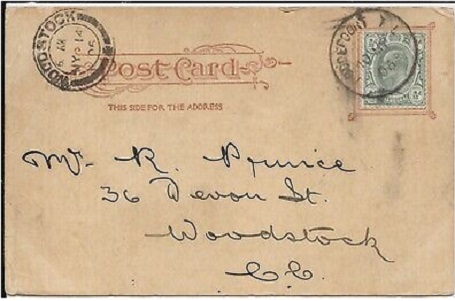 WOODSTOCK
MY 14
06
POST CARD
THIS SIDE FOR THE ADDRESS
Mr. R.
36 Devon St.
Woodstock
C.C.